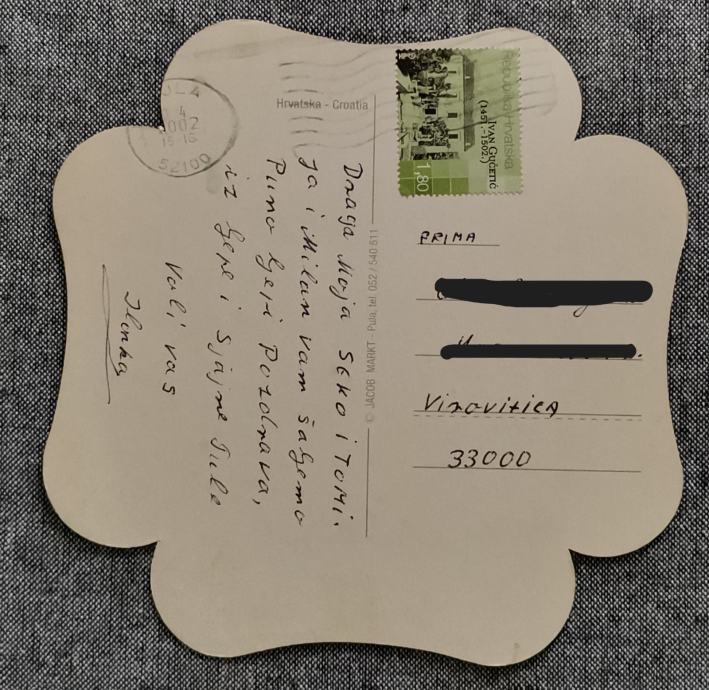 Draga Moja Seko i Tomi.
Ja i Milan vam šaljemo
Puno ljepi Pozdrava,
iz ljepe i Sjajne Pule
Voli vas
Ilinka
Hrvatska - Croatia
© JACOB MARKT - Pula, tel. 052 / 540 511
Republika Hrvatska
IVAN GUČETIĆ
(1451.-1502.)
1,80
PULA
4
2002
15-16
52100
PRIMA
Virovitica
33000